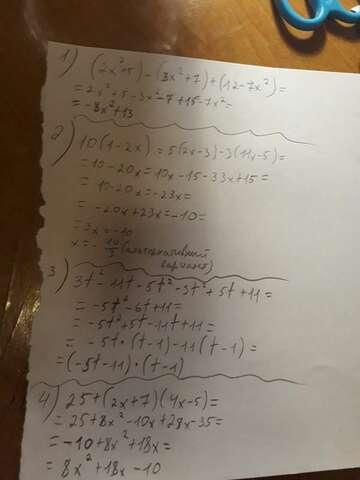 1) (2x²+5) - (3x²+7) + (12-7x²) =
= 2x²+5-3x²-7+15-7x² =
= -8x²+13
2) 10(1-2x) = 5(2x-3) - 3(11x-5) =
= 10-20x = 10x-15-33x+15 =
= 10-20x = -23x =
= -20x+23x = -10 =
= 3x = -10
x = -10/3 (альтернативный
вариант)
3) 3t²-11t-5t²-3t²+5t+11 =
= -5t²-6t+11 =
= -5t²+5t-11t+11 =
= -5t·(t-1)-11(t-1) =
= (-5t-11)·(t-1)
4) 25+(2x+7)(4x-5) =
= 25+8x²-10x+28x-35 =
= -10+8x²+18x =
= 8x²+18x-10